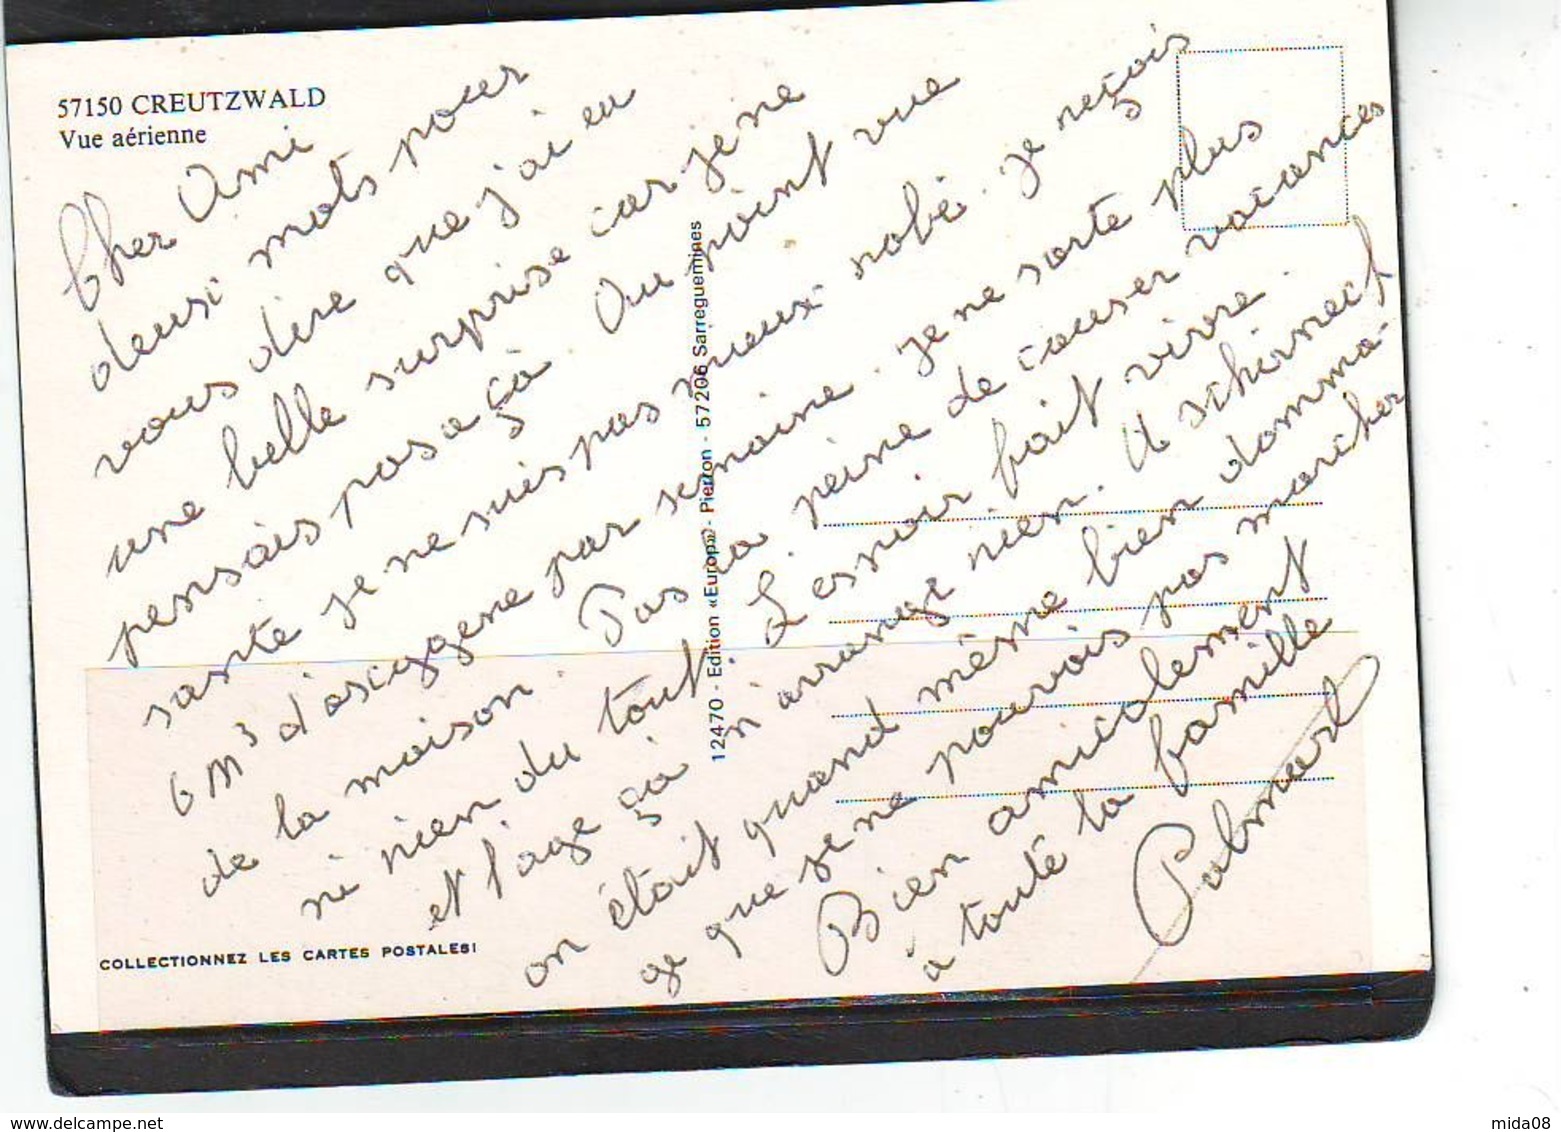 57150 CREUTZWALD
Vue aérienne
Cher Ami
deux mots pour
vous dire que j'ai eu
une belle surprise car je ne
pensais pas a ça. Au point vue
sante je ne suis pas mieux je reçois
6 M³ d'oxygene par semaine. je ne sorte plus
de la maison. Pas la peine de causer vacances
ni rien du tout. L'espoir fait vivre.
et l'age ça n'arrange rien. A schirmeck
on était quand même bien domma-
ge que je ne pouvais pas marcher
Bien amicalement
à touté la famille
12470 - Edition «Europ» - Pierron - 57206 Sarreguemines
COLLECTIONNEZ LES CARTES POSTALES!
www.delcampe.net
mida08